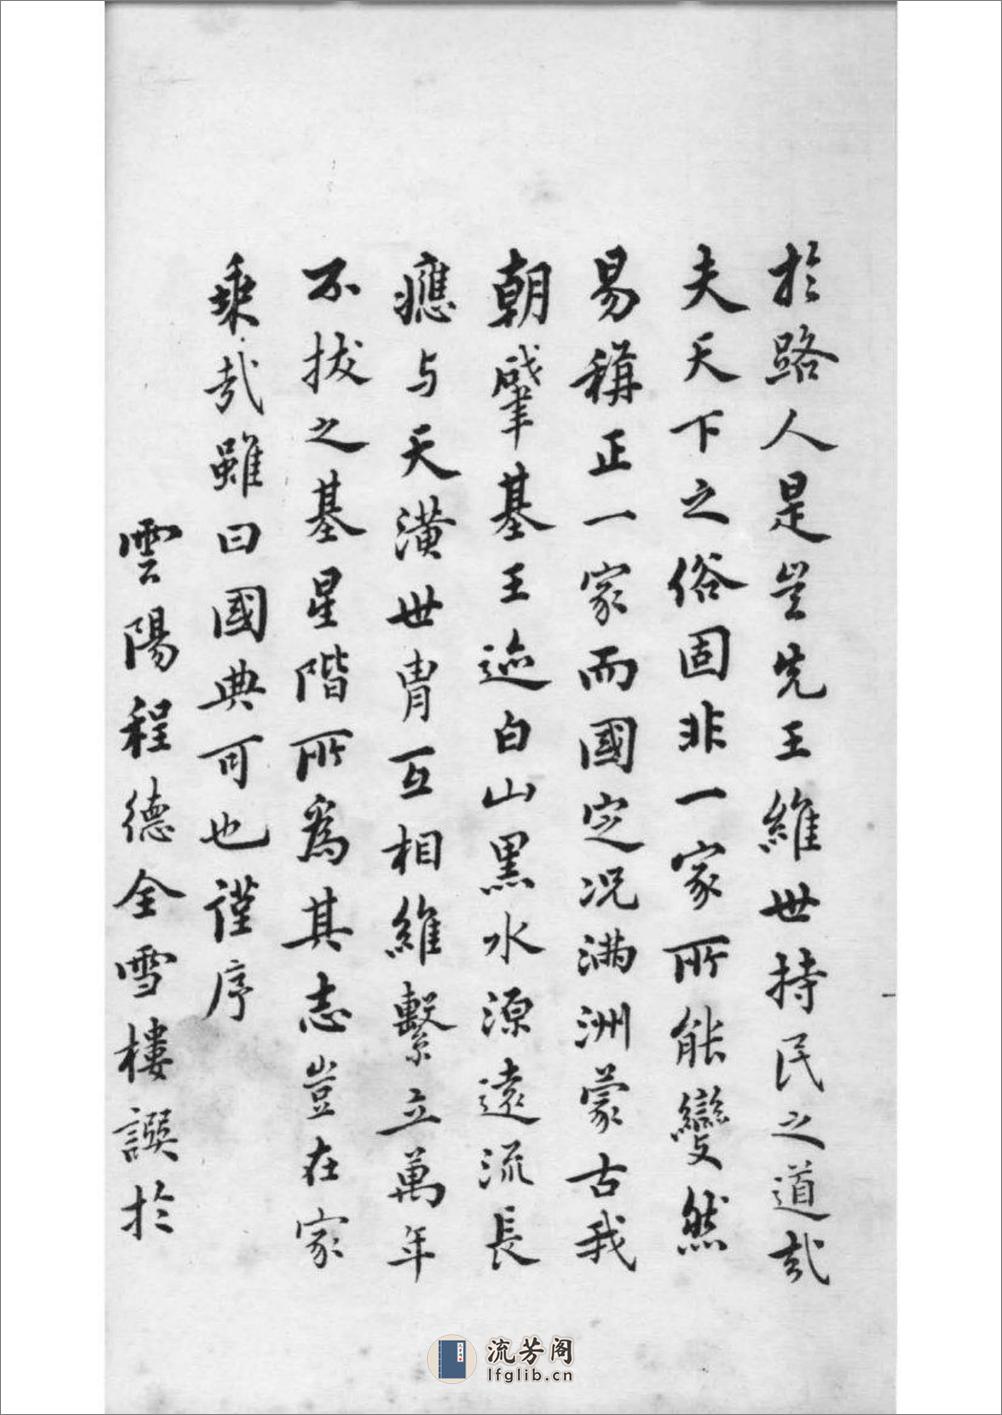 於路人是豈先王維世持民之道哉
夫天下之俗固非一家所能變然
易稱正一家而國定况滿洲蒙古我
朝肇基王迹白山黑水源遠流長
應与天潢世胄互相維繫立萬年
不拔之基星階所爲其志豈在家
乘哉雖曰國典可也謹序
雲陽程德全雪樓譔於
流芳阁
lfglib.cn